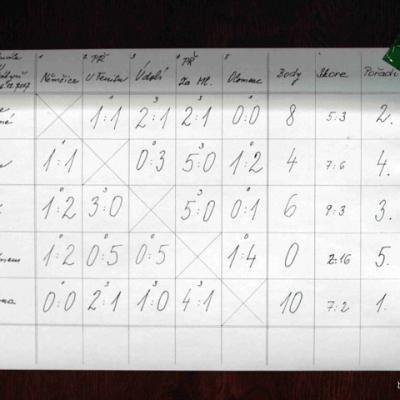 1 2 PŘ 3 4 PŘ 5
Němčice U Tenisu Údolí Za Ml. Olomouc Body Skore Pořadí
1:1 2:1 2:1 0:0 8 5:3 2.
1:1 0:3 5:0 1:2 4 7:6 4.
1:2 3:0 5:0 0:1 6 9:3 3.
1:2 0:5 0:5 1:4 0 2:16 5.
0:0 2:1 1:0 4:1 10 7:2 1.